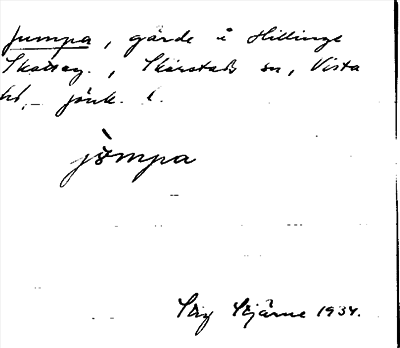 Jumpa, gärde i Hillinge
Skatteg., Skärstads sn, Vista
hd, Jönk. l.
jömpa
Stig Stjärne 1934.